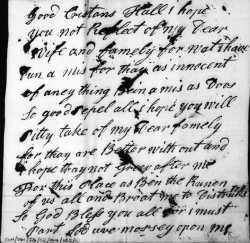 Good Cristans Hall I hope
you not Reflect of my Dear
Wife and famely for wat I have
Dun a mis for thay as innocent
of aney thing Ben a mis as Dovs
So good Pepel all i hope you will
Pitty take of my Dear famely
for thay are Better with out and
i hope thay not Grevf after me
For this Place as Ben the Ruen
of us all and Broat me to
So God Bless you all for i must
Part Lod have mossey upon me